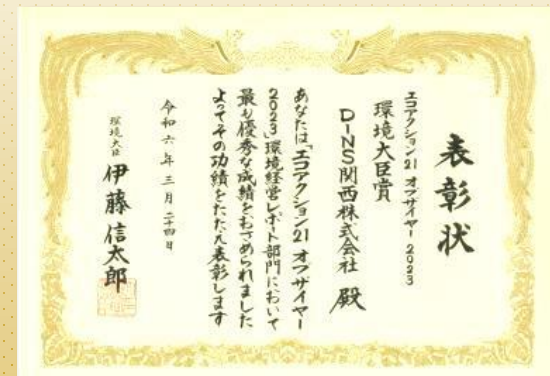 表彰状
エコアクション21 オブザイヤー2023
環境大臣賞
DINS関西株式会社 殿
あなたは「エコアクション21 オブザイヤー
2023」環境経営レポート部門において
最も優秀な成績をおさめられました
よってその功績をたたえ表彰します
令和六年三月二十四日
環境大臣 伊藤信太郎